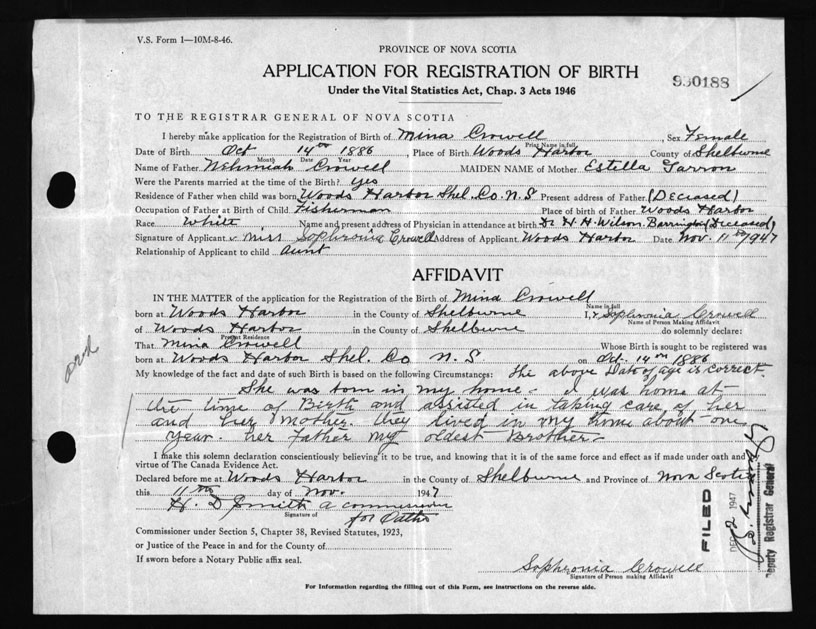 V.S. Form 1—10M-8-46.
PROVINCE OF NOVA SCOTIA
APPLICATION FOR REGISTRATION OF BIRTH
Under the Vital Statistics Act, Chap. 3 Acts 1946
930188
TO THE REGISTRAR GENERAL OF NOVA SCOTIA
I hereby make application for the Registration of Birth of Mina Crowell, Sex Female
Print Name in full
Date of Birth Oct 14th 1886, Place of Birth Woods Harbor County of Shelburne
Month Date Year
Name of Father Nehmiah Crowell MAIDEN NAME of Mother Estella Garron
Were the Parents married at the time of the Birth? yes
Residence of Father when child was born Woods Harbor Shel. Co. N.S Present address of Father (Deceased)
Occupation of Father at Birth of Child Fisherman Place of birth of Father Woods Harbor
Race White, Name and present address of Physician in attendance at birth Dr H H. Wilson. Barrington (Deceased)
Signature of Applicant Miss Sophronia Crowell Address of Applicant Woods Harbor Date Nov. 11th 1947
Relationship of Applicant to child aunt
AFFIDAVIT
IN THE MATTER of the application for the Registration of the Birth of Mina Crowell
Name in full
born at Woods Harbor in the County of Shelburne I, Sophronia Crowell
Name of Person Making Affidavit
of Woods Harbor in the County of Shelburne do solemnly declare:
Present Residence
That Mina Crowell Whose Birth is sought to be registered was
born at Woods Harbor Shel. Co N. S on Oct. 14th 1886
My knowledge of the fact and date of such Birth is based on the following Circumstances: The above Date of age is correct.
She was born in my home - I was home at
the time of Birth and assisted in taking care of her
and her Mother. they lived in my home about one
year. her father my oldest Brother-
I make this solemn declaration conscientiously believing it to be true, and knowing that it is of the same force and effect as if made under oath and
virtue of The Canada Evidence Act.
Declared before me at Woods Harbor in the County of Shelburne and Province of Nova Scotia
this 11th day of Nov. 1947
H. D Smith a commissioner
Signature of
for Oaths
Commissioner under Section 5, Chapter 38, Revised Statutes, 1923,
or Justice of the Peace in and for the County of
If sworn before a Notary Public affix seal.
Sophronia Crowell
Signature of Person making Affidavit
For Information regarding the filling out of this Form, see instructions on the reverse side.
FILED
DEC 2 1947
Deputy Registrar General